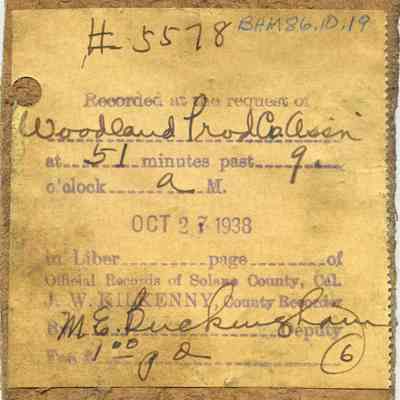 # 5578 BHM86.10.19
Recorded at the request of
Woodland Prod Co Ass'n
at 51 minutes past 9.
o'clock a M.
OCT 27 1938
in Liber page of
Official Records of Solano County, Cal.
J. W. KILKENNY County Recorder
By M.E. Buckingham Deputy
Fee $ 1 00 pd
6